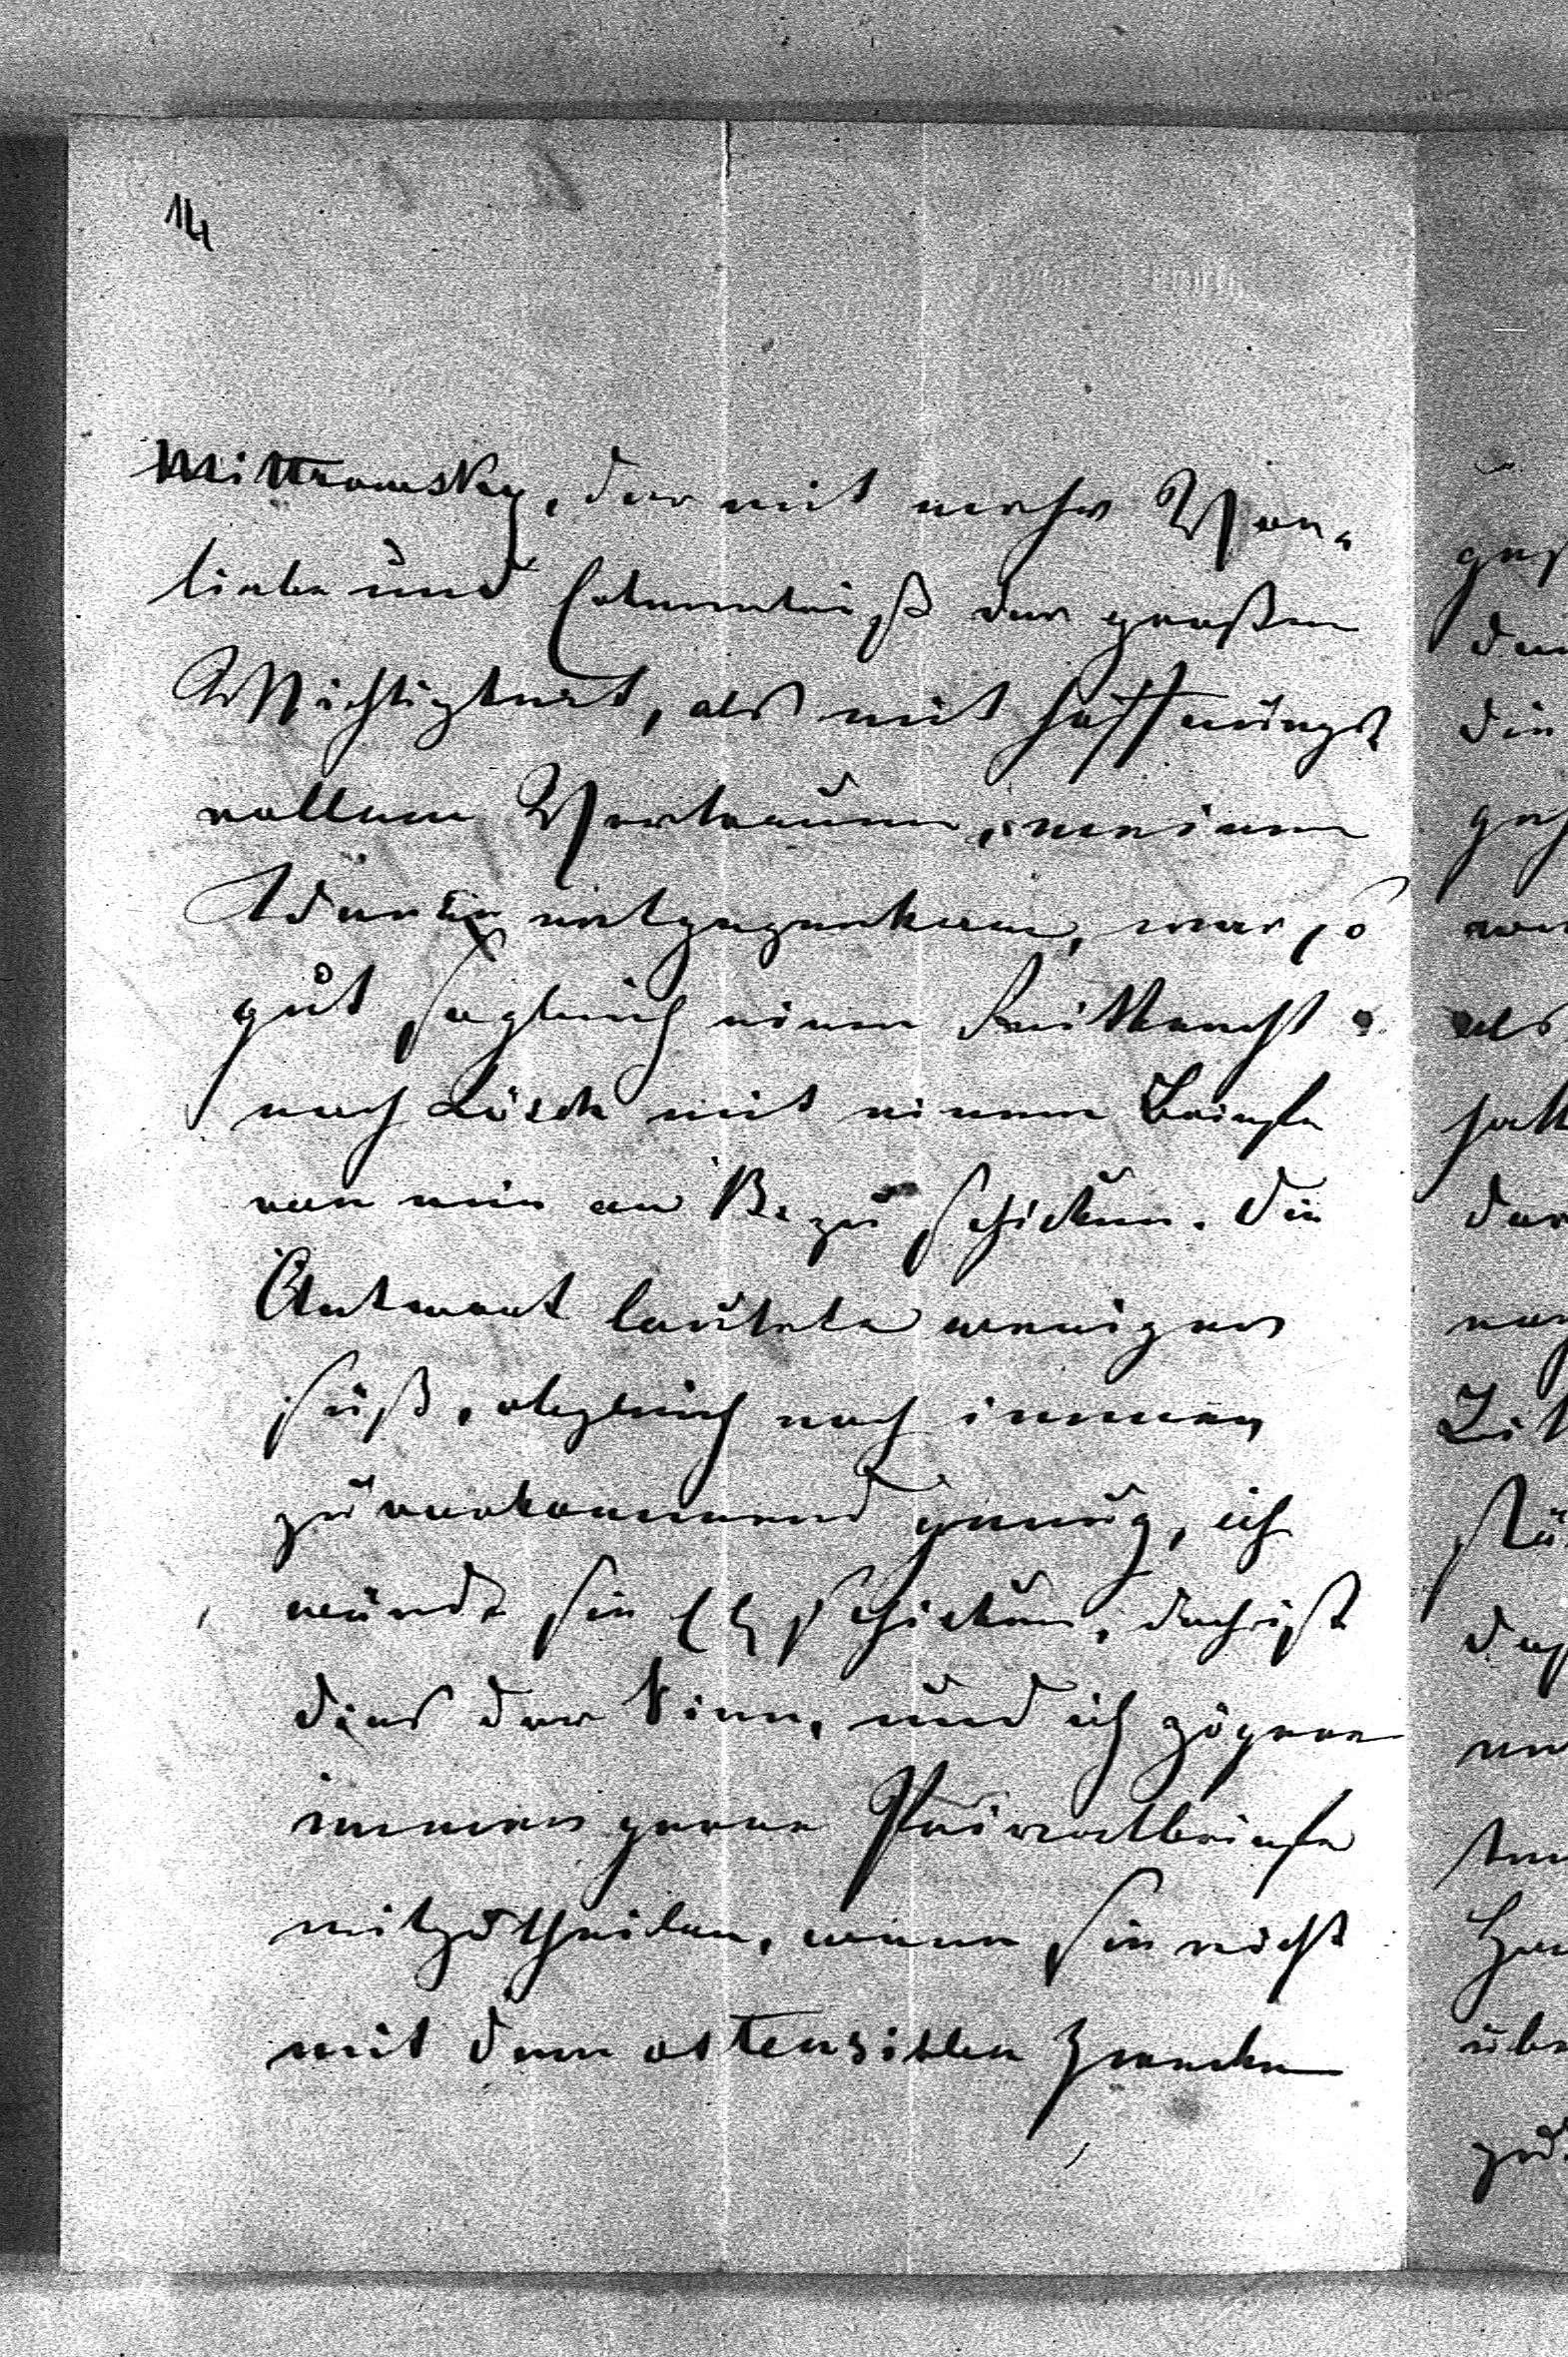 14
Mittrowsky, der mit mehr Vor-
liebe und Erkenntniß der großen
Wichtigkeit, als mit hoffnungs
vollem Vertrauen, meinen
Ideen entgegenkam, war so
gut sogleich einen Reitknecht
nach Lösch mit einem Briefe
von mir an B. zu schicken. Die
Antwort lautete weniger
süß, obgleich noch immer
zuvorkommend genug, ich
würde sie schicken, doch ist
dies der Sinn, und ich zögere
immer gerne Privatbriefe
mitzutheilen, wenn sie nicht
mit dem ostensiblen Zwecke